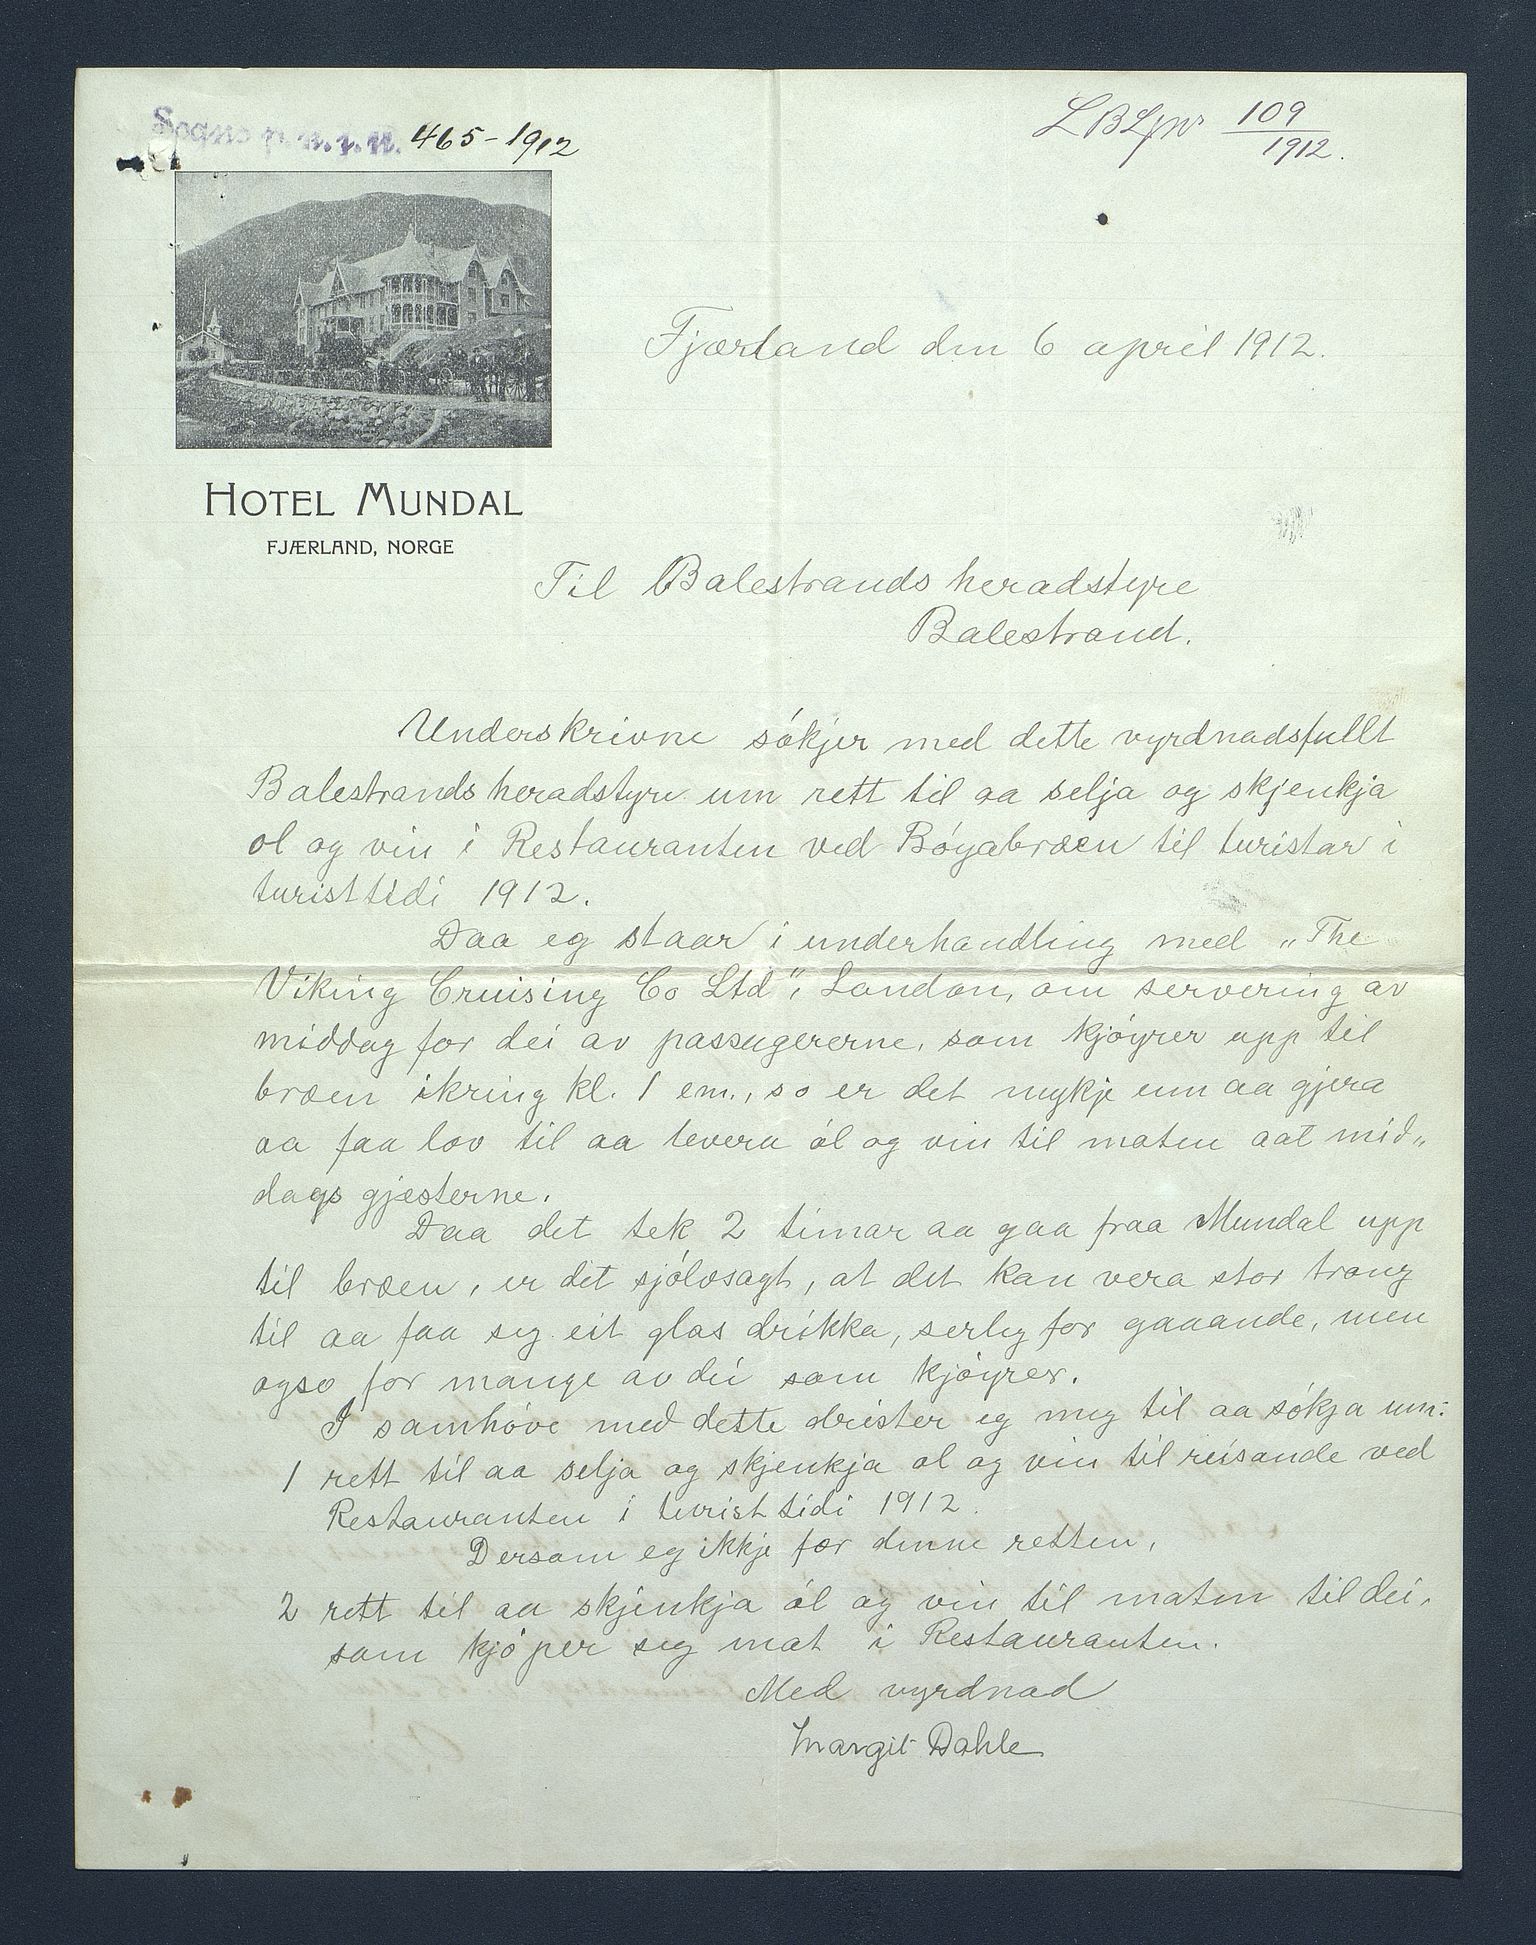 Sogns p. n. j. N. 465-1912
109
1912.
Fjærland den 6 april 1912.
HOTEL MUNDAL
FJÆRLAND, NORGE
Til Balestrands heradstyre
Balestrand.
Underskrivne sókjer med dette vyrdnadsfullt
Balestrands heradstyre um rett til aa selja og skjenkja
ol og vin i Restauranten ved Bóyabræen til turistar i
turisttidi 1912.
Daa eg staar i underhandling med „The
Viking Cruising Co Ltd", London, om servering av
middag for dei av passugererne, som kjóyrer upp til
bræen ikring kl. 1 em., so er det mykje um aa gjera
aa faa lov til aa levera ól og vin til maten aat mid„
dags gjesterne.
Daa det tek 2 timar aa gaa fraa Mundal upp
til bræen, er det sjólvsagt, at det kan vera stor trong
til aa faa seg eit glas drikka, serleg for gaaande, men
ogso for mange av dei som kjóyrer.
I samhóve med dette drister eg meg til aa sókja um:
1 rett til aa selja og skjenkja ol og vin til reisande ved
Restauranten i turist tidi 1912.
Dersom eg ikkje fær denne retten,
2 rett til aa skjenkja ól og vin til maten til dei,
som kjóper seg mat i Restauranten.
Med vyrdnad
Margit Dahle